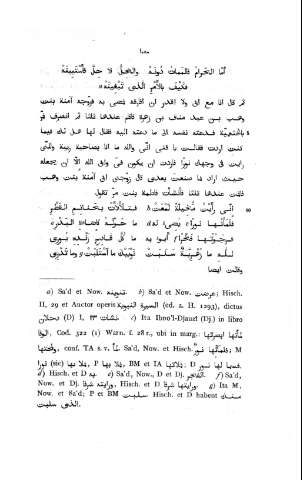 أمّا الحَرَامُ فَالْمَمَاتُ دُونَهُ وَالْحِلُّ لا حِلَّ فَأَسْتَبِينَهُ
فَكَيْفَ بِالْأَمْرِ الَّذِى تَبْغِينَهُ
ثم قال انا مع ابى ولا اقدر ان افارقه فمضى به فزوّجه آمنة بنت
وهب بن عبد مناف بن زهرة فأقام عندها ثلثا ثم انصرف فمرّ
بالخثعميّة فدعته نفسه الى ما دعته اليه فقال لها هل لك فيما
كنت اردت فقالت يا فتى انّى والله ما انا بصاحبة ريبة ولكنّى
رايت فى وجهك نورا فاردت ان يكون فىّ وابى الله الّا ان يجعله
حيث اراد فما صنعت بعدى قال زوّجنى ابى آمنة بنت وهب
فاقمت عندها ثلثا فأنشأت فاطمة بنت مرّ تقول
إنّى رَأَيْتُ مُخِيلَةً لَمَعَتْ فَتَلَأْلَأَتْ بِحَنَاتِمِ القَطْرِ
فَلَمَأْتُهَا نُورًا يُضِىءُ لَهُ مَا حَوْلَهُ كَإضَاءَةِ البَدْرِ
فَرَجَوْتُهَا فَخْرًا أَبُوءُ بِهِ مَا كُلُّ قَادِحِ زَنْدِهِ يُورِى
لِلّهِ مَا زُهْرِيَّةٌ سَلَبَتْ ثَوْبَيْكَ مَا اسْتَلَبَتْ وَمَا تَدْرِى
وقالت ايضا
a) Sa'd et Now. b) Sa'd et Now. عرضت; Hisch.
II, 29 et Auctor operis السيرة النبوية (ed. a. H. 1293), dictus
دحلان (D) I, ٣٣ نشأت. c) Ita Ibno'l-Djauzî (Dj.) in libro
الوفا, Cod. 322 (1) Warn. f. 28 r., ubi in marg.
conf. TA s. v. لمأ. Sa'd, Now. et Hisch. M
(sic) P, BM et IA D
d) Hisch. et D به. e) Sa'd, Now., D et Dj. f) Sa'd,
Now. et Dj. Hisch. et D g) Ita M,
Now. et Sa'd; P et BM سلبت. Hisch. et D habent منك
الذى سلبت.